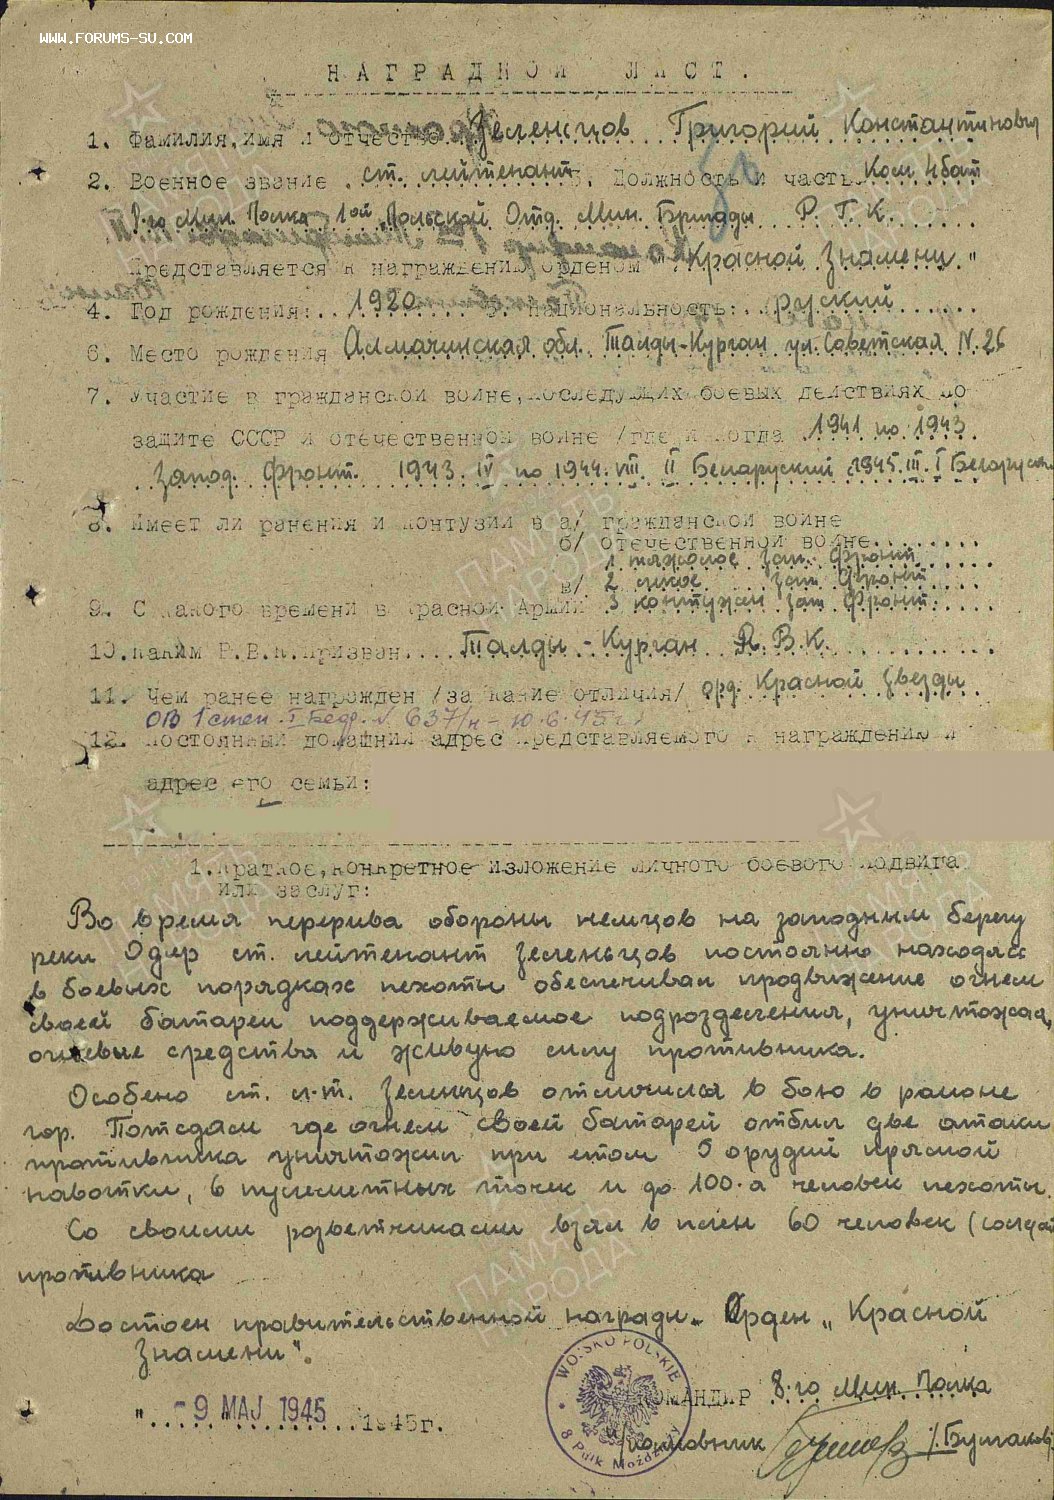 WWW.FORUMS-SU.COM
НАГРАДНОЙ ЛИСТ.
1. Фамилия, имя и отчество Зеленцов Григорий Константинович
2. Военное звание ст. лейтенант 3. Должность и часть Ком 4 бат
8-го Мин. Полка 1ой Польской Отд. Мин. Бригады Р. Г. К.
Представляется к награждению орденом "Красной Знамени"
4. Год рождения: 1920 5. Национальность: руский
6. Место рождения Алмаатинская обл. Талды-Курган ул. Советская N 26
7. Участие в гражданской войне, последующих боевых действиях по
защите СССР и отечественной войне /где и когда 1941 по 1943
Запад. Фронт. 1943. IV по 1944. VIII. II Беларуский 1945. III. I Белорус
8. Имеет ли ранения и контузии в а/ гражданской войне
б/ отечественной войне
1 тяжолое Зап. Фронт
в/ 2 легкое Зап Фронт
9. С какого времени в Красной Армии 3 контужен Зап Фронт.
10. Каким Р.В.К. призван Талды-Курган Р. В. К.
11. Чем ранее награжден /за какие отличия/ орд. Красной Звезды
ОВ 1 степ. I Бефр. № 637/н - 10.6.45 г.
12. Постоянный домашний адрес представляемого к награждению и
адрес его семьи:
1. Краткое, конкретное изложение личного боевого подвига
или заслуг:
Во время перерива обороны немцов на западным берегу
реки Одер ст. лейтенант Зеленьцов постоянно находясь
в боевых порядках пехоты обеспечивал продвижение огнем
своей батареи поддерживаемое подразделения, уничтожая
огневые средства и живую силу противника.
Особено ст. л-т. Зеленцов отличился в бою в районе
гор. Потсдам где огнем своей батарей отбил две атаки
противника уничтожил при етом 5 орудий прямой
наводки, 6 пулеметных точек и до 100-а человек пехоты.
Со своими розветчиками взял в плен 60 человек (солдат
противника
Достоен правительственной награди. Орден "Красной
Знамени".
- 9 MAJ 1945 1945г.
WOJSKO POLSKIE
8 Pułk Moździerzy
КОМАНДИР 8-го Мин. Полка
Полковник /Бушаков/
ПАМЯТЬ НАРОДА